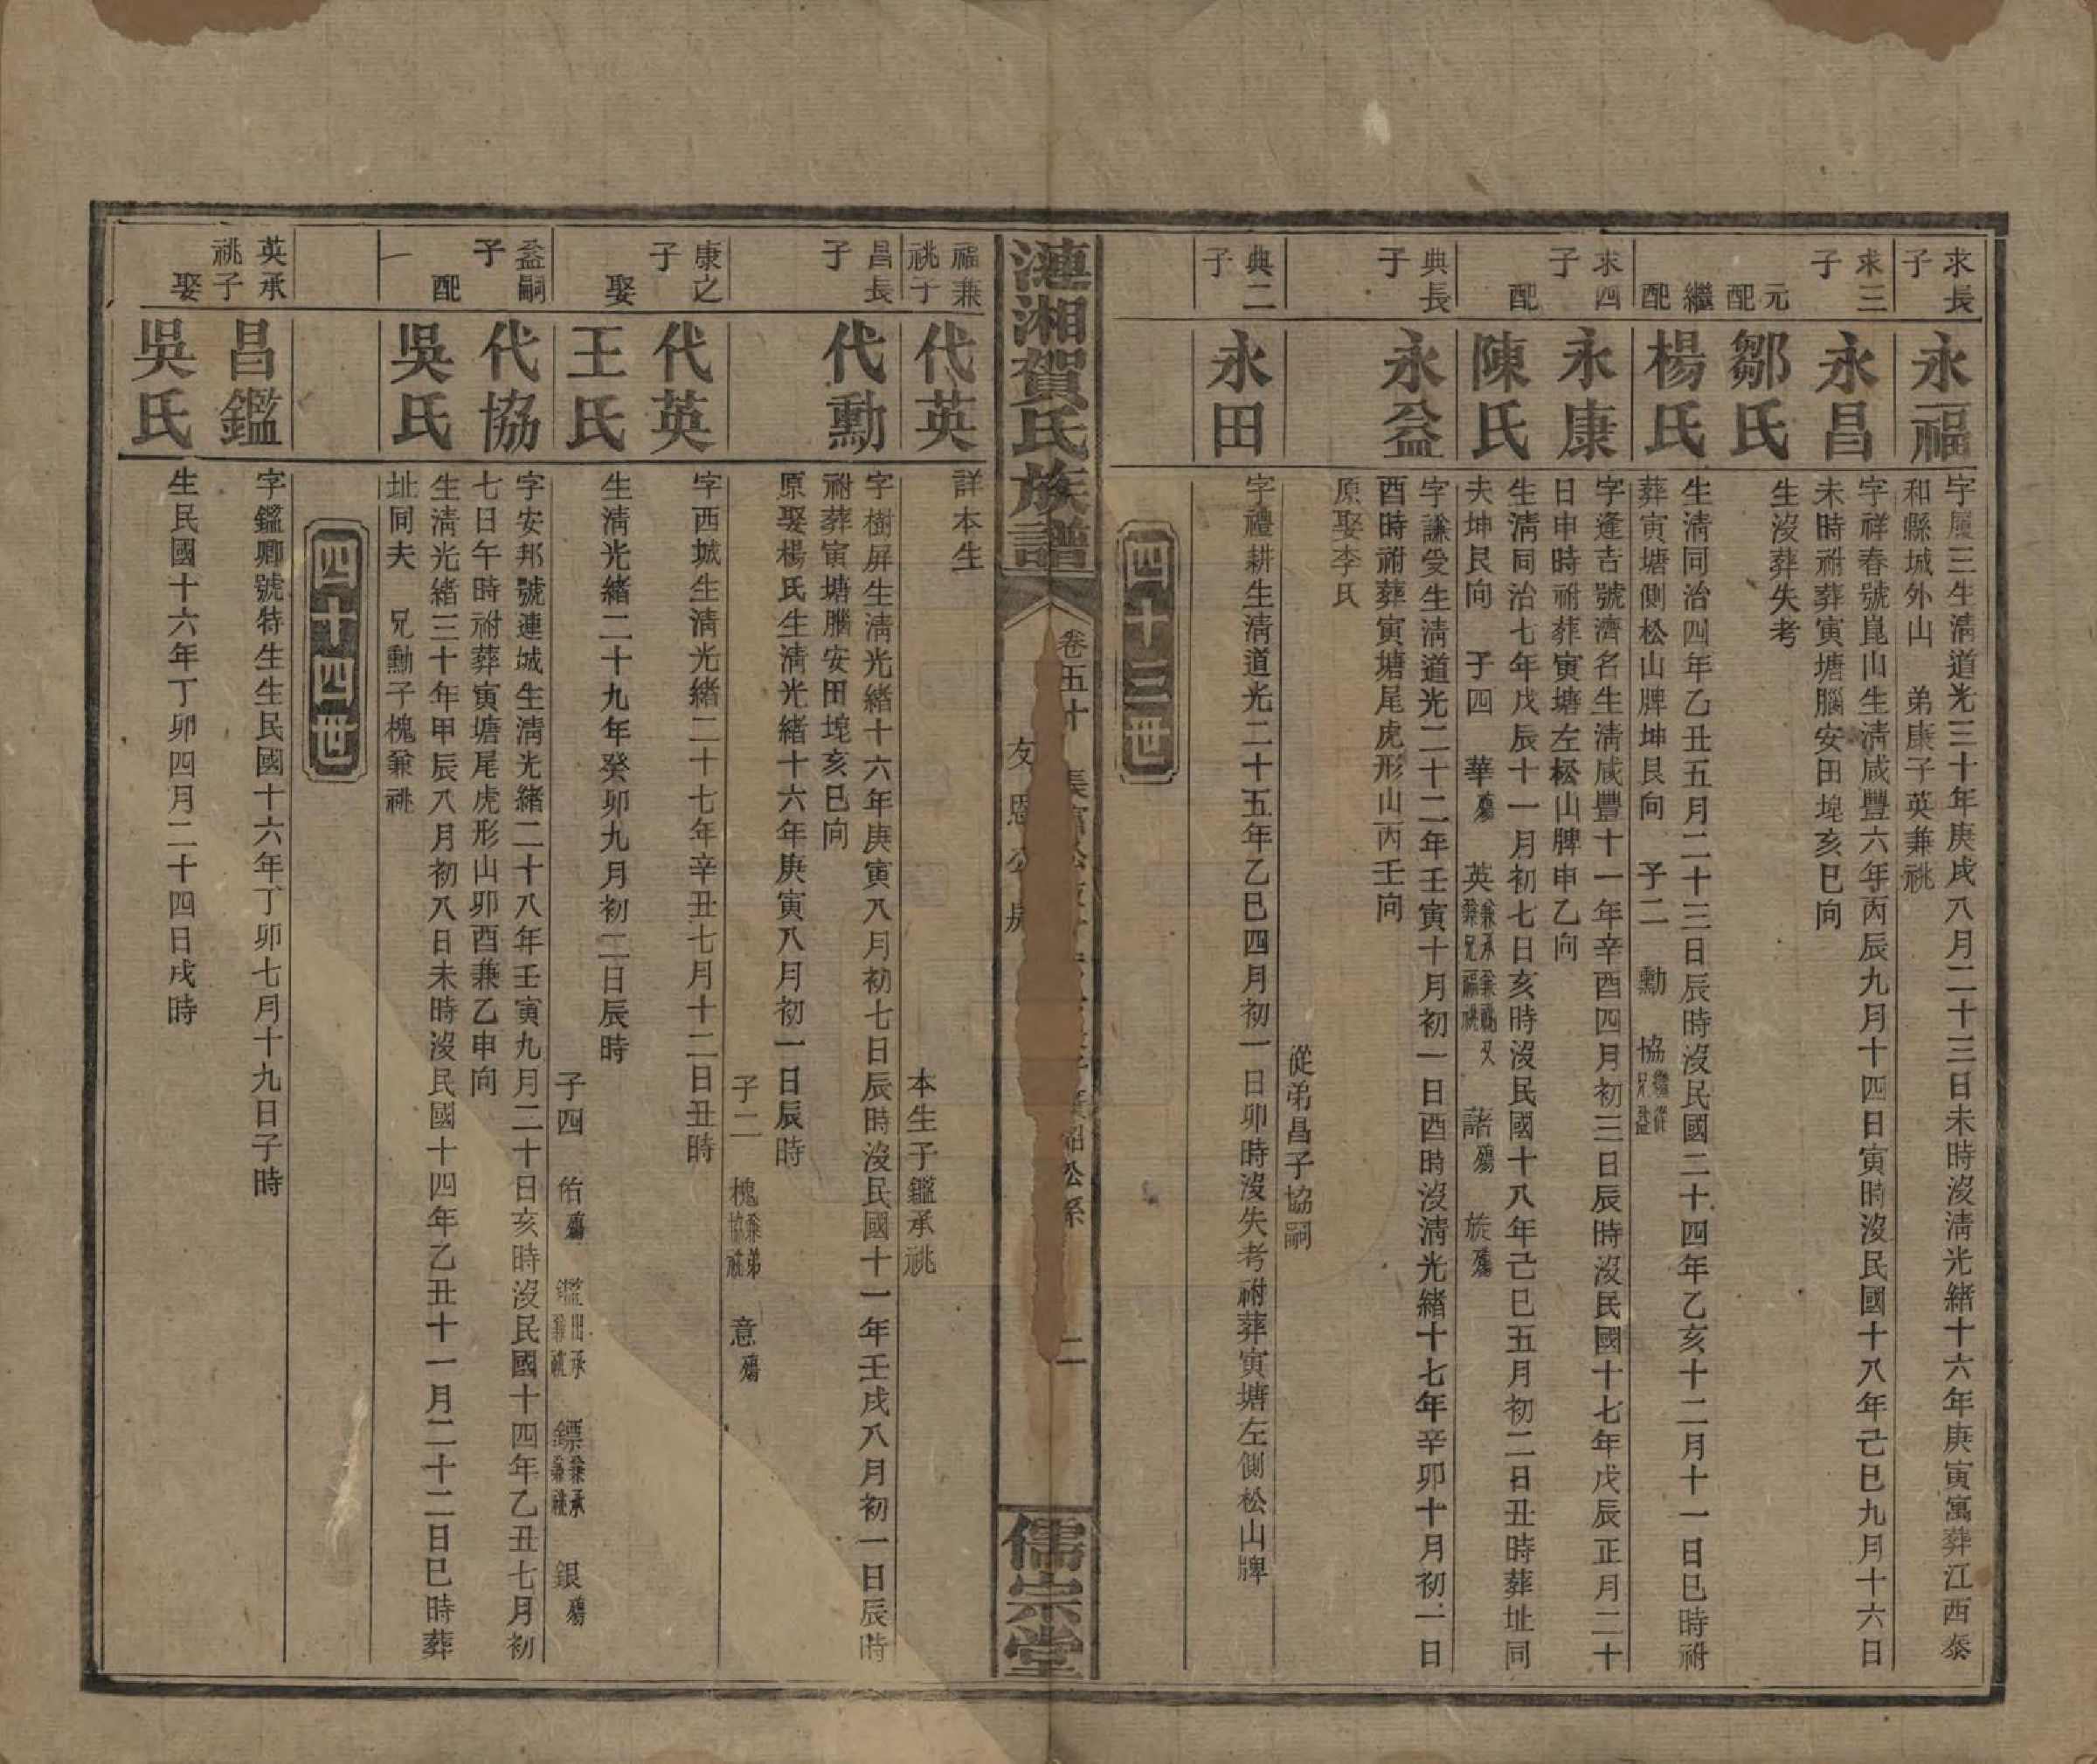 求長子
永福
字廈三生淸道光三十年庚戌八月二十三日未時沒淸光緖十六年庚寅寓葬江西泰
和縣城外山　弟康子英兼祧
求三子
永昌
字祥春號崑山生淸咸豐六年丙辰九月十四日寅時沒民國十八年己巳九月十六日
未時祔葬寅塘腦安田埦亥巳向
元配
鄒氏
生沒葬失考
繼配
楊氏
生淸同治四年乙丑五月二十三日辰時沒民國二十四年乙亥十二月十一日巳時祔
葬寅塘側松山牌坤艮向　子二　勳　協繼從兄益
求四子
永康
字逢吉號濟名生淸咸豐十一年辛酉四月初三日辰時沒民國十七年戊辰正月二十
日申時祔葬寅塘左松山牌申乙向
配
陳氏
生淸同治七年戊辰十一月初七日亥時沒民國十八年己巳五月初二日丑時葬址同
夫坤艮向　子四　華殤　英　諸殤　旋殤
典長子
永益
字謙受生淸道光二十二年壬寅十月初一日酉時沒淸光緖十七年辛卯十月初一日
酉時祔葬寅塘尾虎形山丙壬向
原娶李氏
從弟昌子協嗣
典二子
永田
字禮耕生淸道光二十五年乙巳四月初一日卯時沒失考祔葬寅塘左側松山牌
四十三世
漣湘賀氏族譜
卷五十
友恩公房
二
儒宗堂
福兼祧子
代英
詳本生
本生子鑑承祧
昌長子
代勳
字樹屏生淸光緖十六年庚寅八月初七日辰時沒民國十一年壬戌八月初一日辰時
祔葬寅塘腦安田埦亥巳向
原娶楊氏生淸光緖十六年庚寅八月初一日辰時
子二　槐兼弟協祧　意殤
康之子
代英
字西城生淸光緖二十七年辛丑七月十二日丑時
娶
王氏
生淸光緖二十九年癸卯九月初二日辰時
子四　佑殤　鑑出承兼祧　鏢兼承兼祧　銀殤
益嗣子
代協
字安邦號連城生淸光緖二十八年壬寅九月二十日亥時沒民國十四年乙丑七月初
七日午時祔葬寅塘尾虎形山卯酉兼乙申向
一配
吳氏
生淸光緖三十年甲辰八月初八日未時沒民國十四年乙丑十一月二十二日巳時葬
址同夫　兄勳子槐兼祧
四十四世
英承祧子
昌鑑
字鑑卿號特生生民國十六年丁卯七月十九日子時
娶
吳氏
生民國十六年丁卯四月二十四日戌時